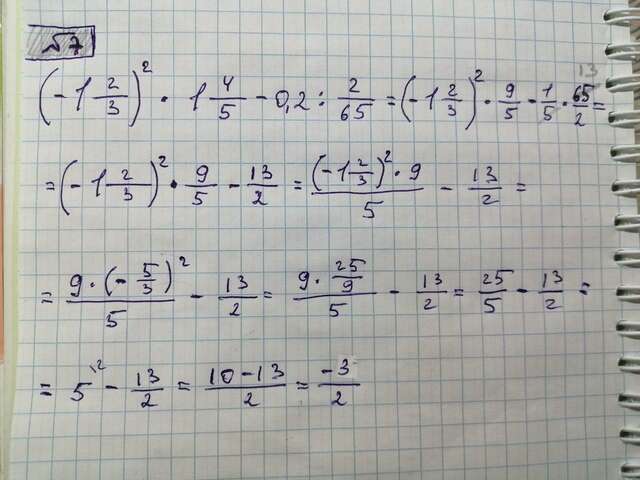 №7
(-1 2/3)² · 1 4/5 - 0,2 : 2/65 = (-1 2/3)² · 9/5 - 1/5 · 65/2 = 13
= (-1 2/3)² · 9/5 - 13/2 = (-1 2/3)² · 9 / 5 - 13/2 =
= 9 · (-5/3)² / 5 - 13/2 = 9 · 25/9 / 5 - 13/2 = 25/5 - 13/2 =
= 5^\2 - 13/2 = 10-13 / 2 = -3/2